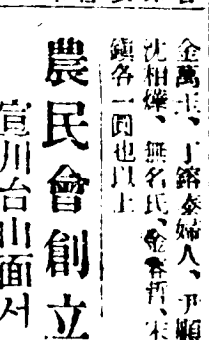 金萬玉、丁鎔泰婦人、尹順
沈相燁、無名氏、金春哲、宋
鎭各一圓也以上
農民會創立
宣川台山面서